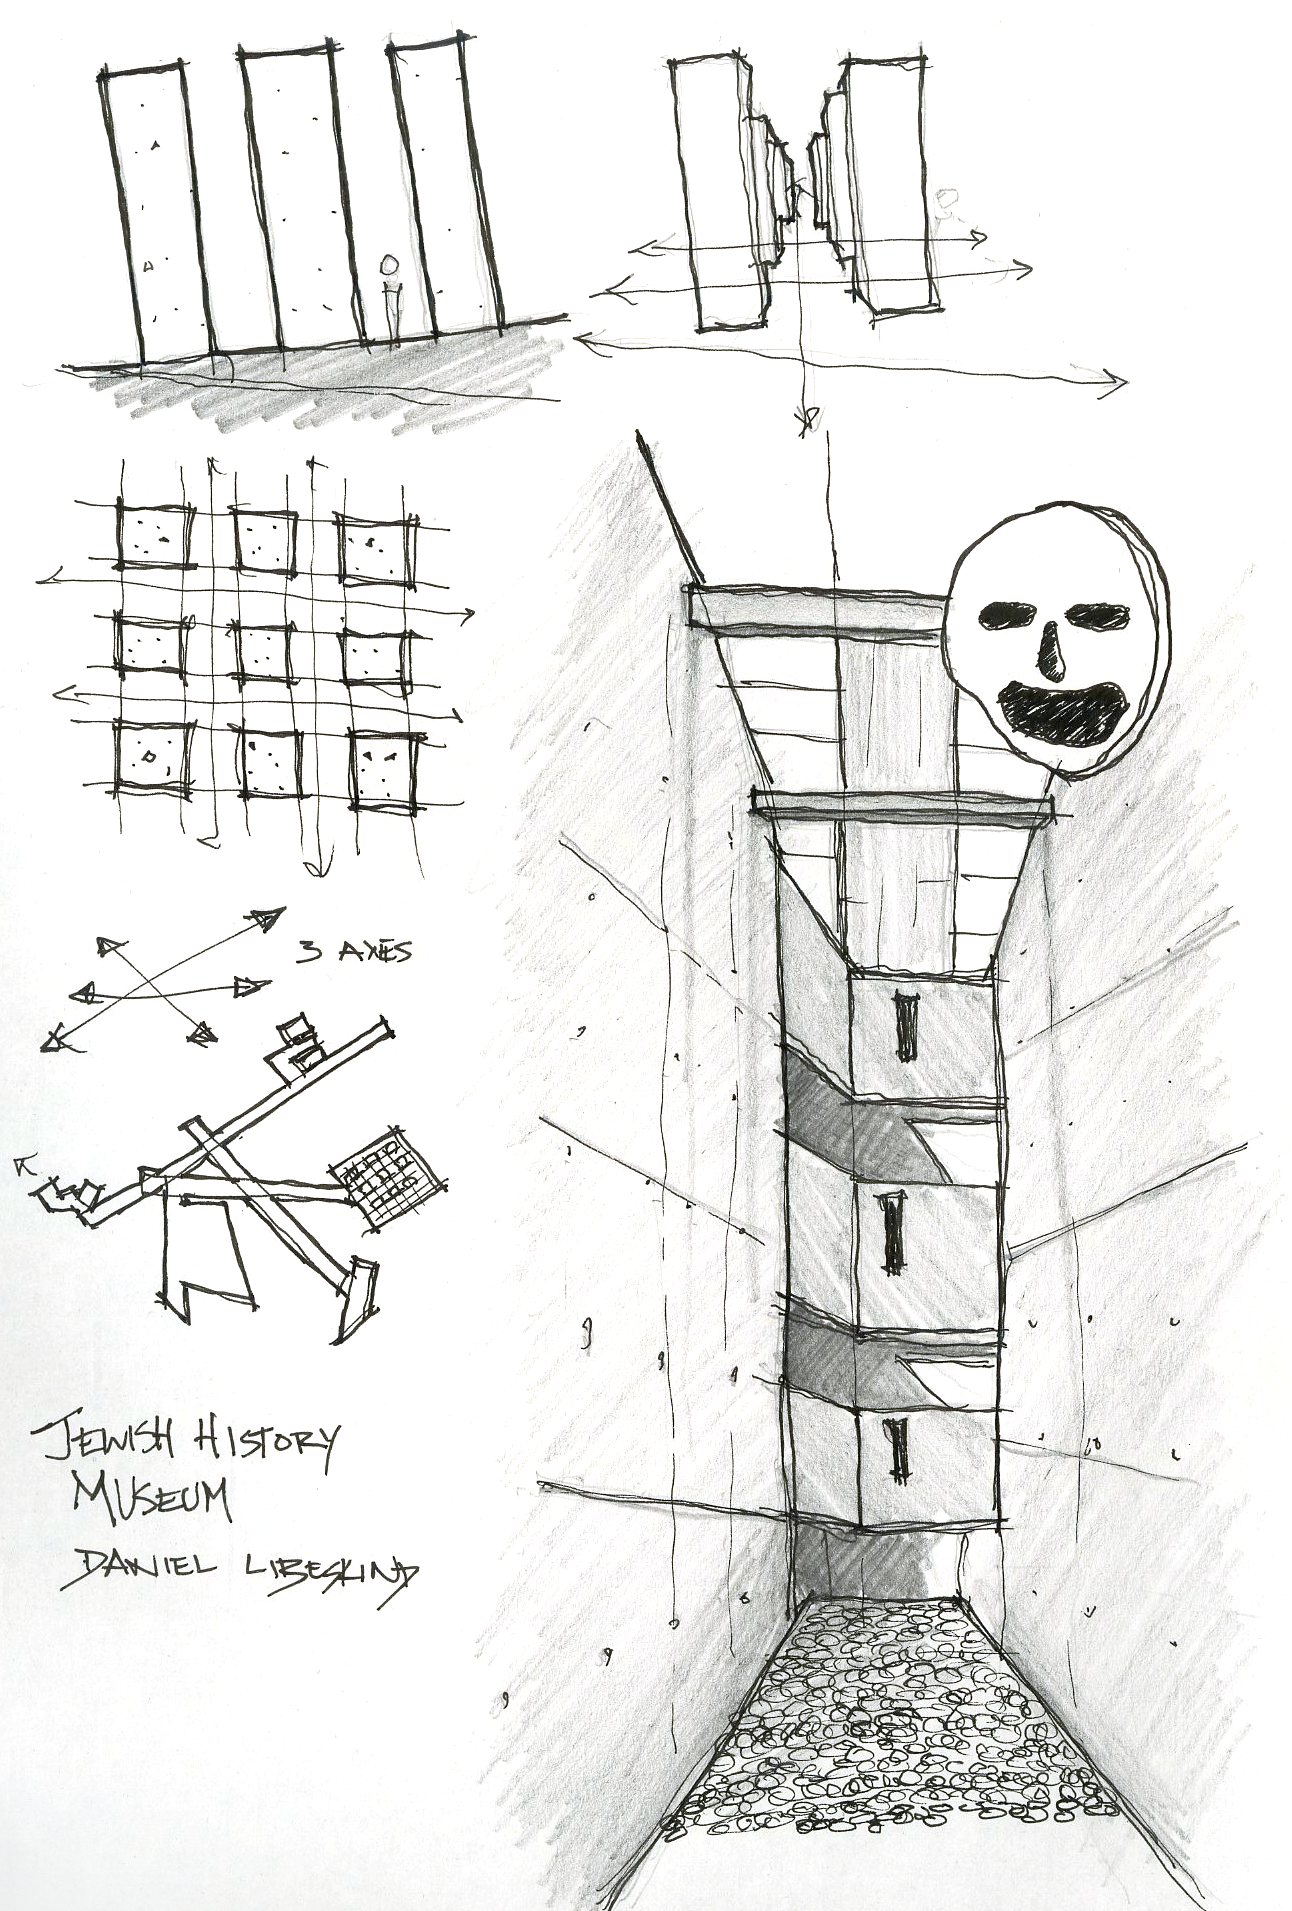 3 AXES
JEWISH HISTORY
MUSEUM
DANIEL LIBESKIND